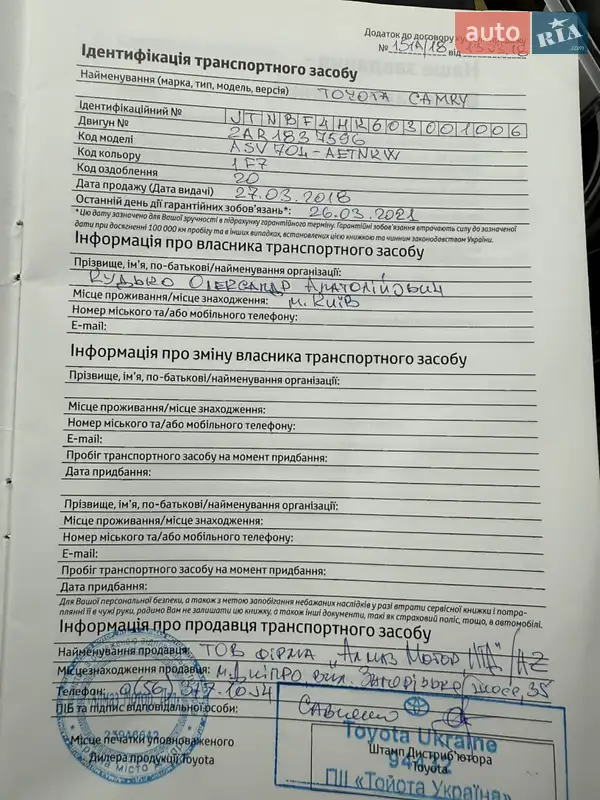 auto RIA .com
Додаток до договору
№ 151А/18 від
Ідентифікація транспортного засобу
Найменування (марка, тип, модель, версія) TOYOTA CAMRY
Ідентифікаційний № JTNBF4HK603001006
Двигун № 2AR1837596
Код моделі ASV70L-AETNKW
Код кольору 1F7
Код оздоблення 20
Дата продажу (Дата видачі) 27.03.2018
Останній день дії гарантійних зобов'язань*: 26.03.2021
*Цю дату зазначено для Вашої зручності в підрахунку гарантійного терміну. Гарантійні зобов'язання втрачають силу до зазначеної
дати при досягненні 100 000 км пробігу та в інших випадках, встановлених цією книжкою та чинним законодавством України.
Інформація про власника транспортного засобу
Прізвище, ім'я, по-батькові/найменування організації:
Кудько Олександр Анатолійович
Місце проживання/місце знаходження: м. Київ
Номер міського та/або мобільного телефону:
E-mail:
Інформація про зміну власника транспортного засобу
Прізвище, ім'я, по-батькові/найменування організації:
Місце проживання/місце знаходження:
Номер міського та/або мобільного телефону:
E-mail:
Пробіг транспортного засобу на момент придбання:
Дата придбання:
Прізвище, ім'я, по-батькові/найменування організації:
Місце проживання/місце знаходження:
Номер міського та/або мобільного телефону:
E-mail:
Пробіг транспортного засобу на момент придбання:
Дата придбання:
Для Вашої персональної безпеки, а також з метою запобігання небажаних наслідків у разі втрати сервісної книжки і потра-
плянні її в чужі руки, радимо Вам не залишати цю книжку, а також інші документи, такі як страховий поліс, тощо, в автомобілі.
Інформація про продавця транспортного засобу
Найменування продавця: ТОВ фірма "Алмаз Мотор ЛТД" AZ
Місцезнаходження продавця: м. Дніпро, вул. Запорізьке шосе, 35
Телефон: (056) 377.10.54
ПІБ та підпис відповідальної особи: Савченко
Toyota Ukraine
Місце печатки уповноваженого
Дилера продукції Toyota
Штамп Дистриб'ютора
Toyota
ПІІ «Тойота Україна»